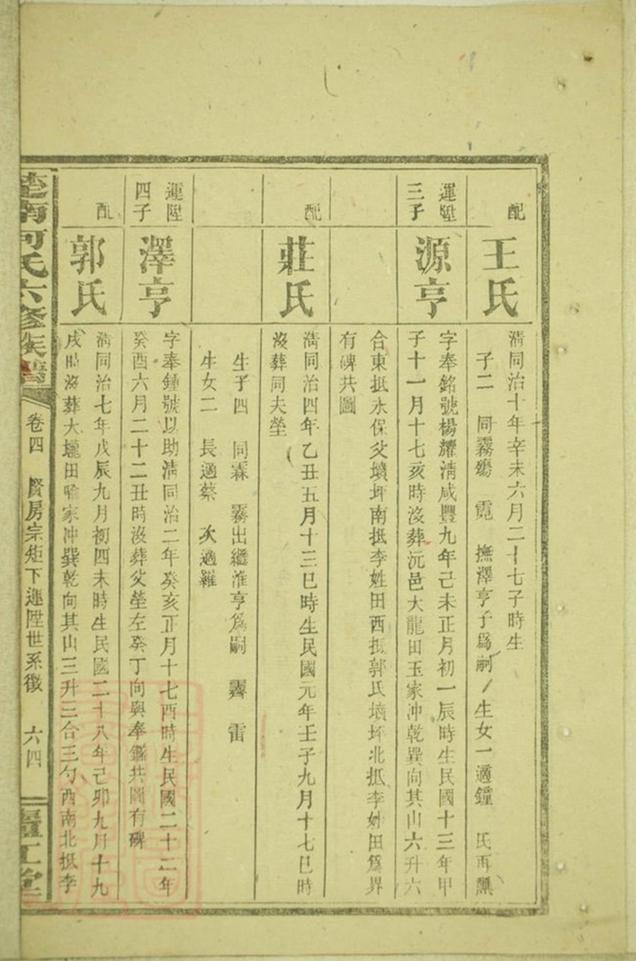 配
王氏
清同治十年辛未六月二十七子時生
子二 同霧殤 霓 撫澤亨子為嗣 生女一適鍾 氏再
運陞
三子
源亨
字奉銘號楊耀清咸豐九年己未正月初一辰時生民國十三年甲
子十一月十七亥時沒葬沅邑大龍田玉家冲乾巽向其山六升六
合東抵水保父墳坪南抵李姓田西抵郭氏墳坪北抵李姓田為界
有碑共圖
配
莊氏
清同治四年乙丑五月十三巳時生民國元年壬子九月十七巳時
沒葬同夫塋
生子四 同霖 霧出繼淮亨為嗣 霽 雷
生女二 長適蔡 次適羅
運陞
四子
澤亨
字奉鐘號以助清同治二年癸亥正月十七酉時生民國二十二年
癸酉六月二十二丑時沒葬父塋左癸丁向與奉鑑共圖有碑
配
郭氏
清同治七年戊辰九月初四未時生民國二十八年己卯九月十九
戌時沒葬大壠田喻家冲巽乾向其山三升三合三勺西南北抵李
楚南何氏六修族譜
卷四 賢房宗矩下運陞世系徵 六四
廬江堂